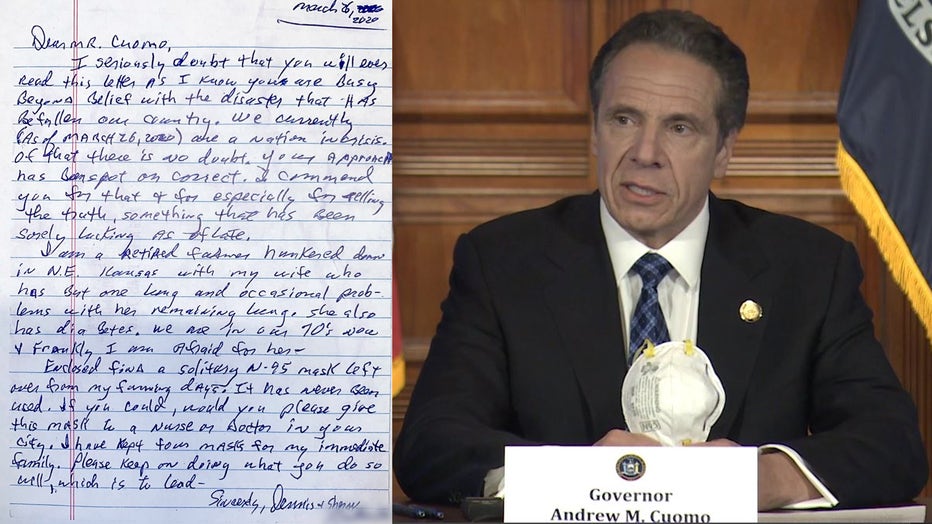 March 26,
2020
Dear Mr. Cuomo,
I seriously doubt that you will ever
read this letter as I know you are busy
beyond belief with the disaster that has
befallen our country. We currently
(as of March 26, 2020) are a nation in crisis.
Of that there is no doubt. Your approach
has been spot on correct. I commend
you for that & for especially for telling
the truth, something that has been
sorely lacking as of late.
I am a retired farmer hunkered down
in N.E. Kansas with my wife who
has but one lung and occasional prob-
lems with her remaining lung. She also
has diabetes. We are in our 70's now
& frankly I am afraid for her-
Enclosed find a solitary N-95 mask left
over from my farming days. It has never been
used. If you could, would you please give
this mask to a nurse or doctor in your
city. I have kept four masks for my immediate
family. Please keep on doing what you do so
well, which is to lead-
Sincerely, Dennis & Sharon
Governor
Andrew M. Cuomo